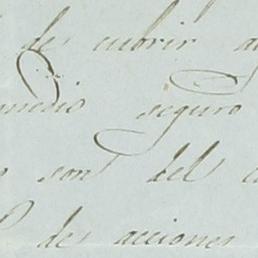 de cubrir
medio seguro
son del
de acciones